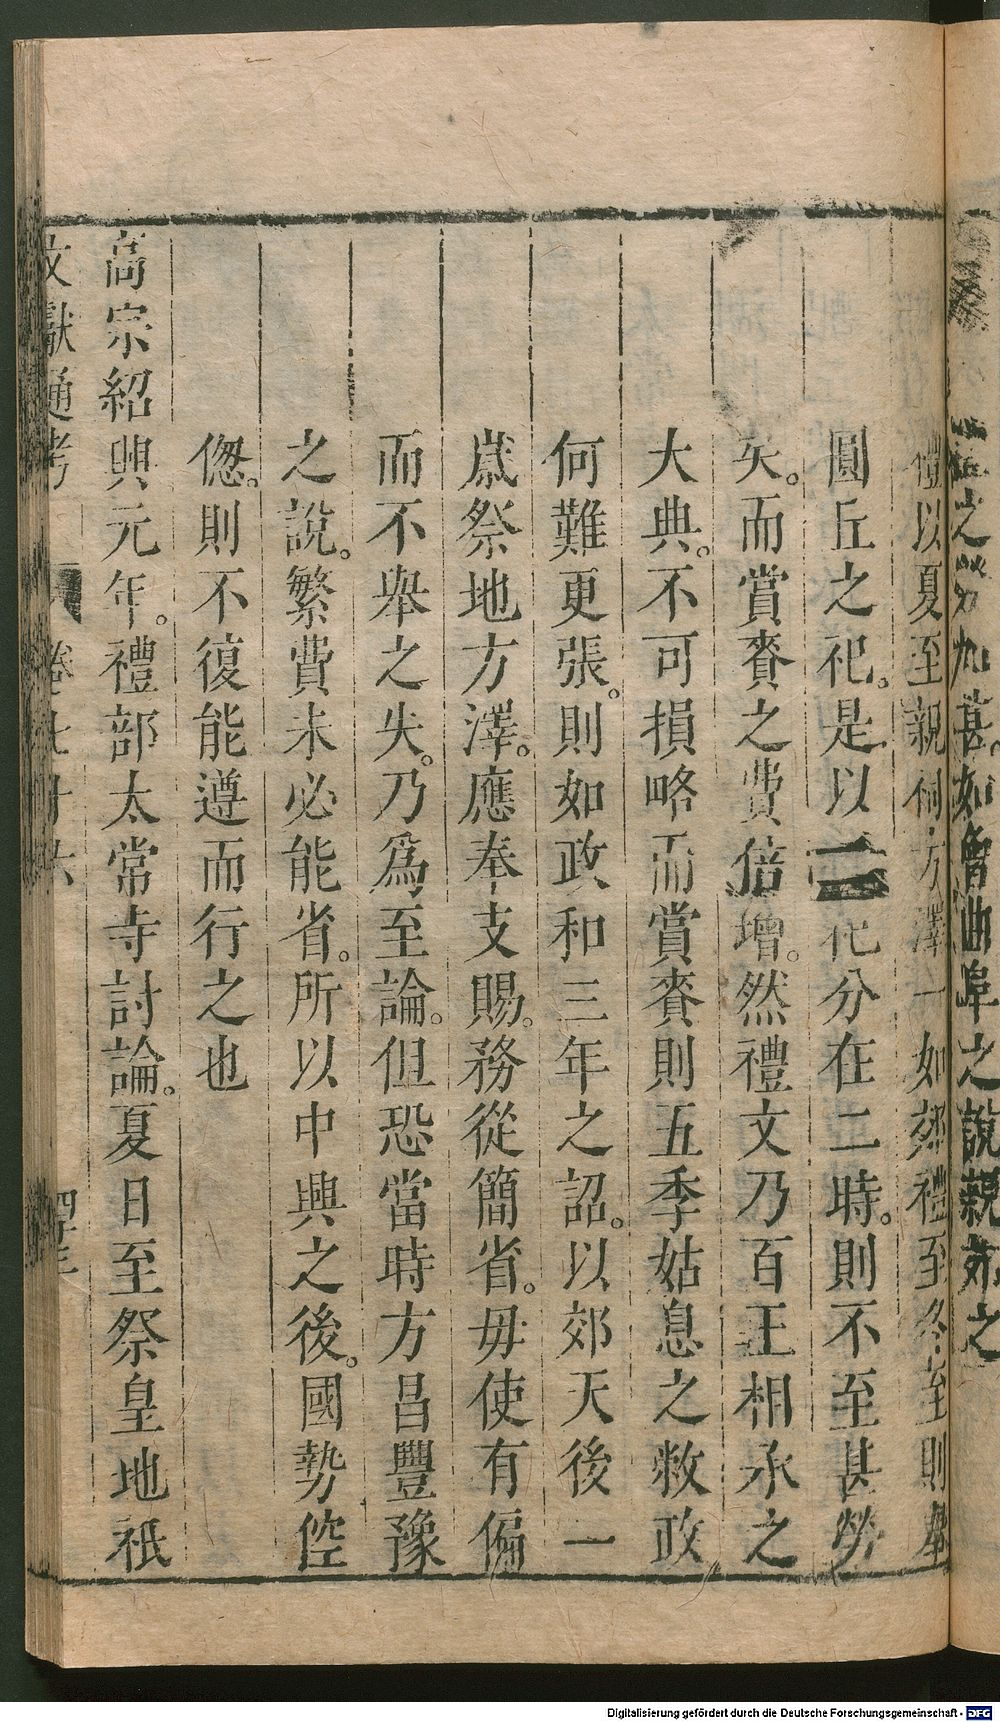 之勞尤甚。如魯曲阜之說親郊之
禮以夏至親祠方澤一如郊禮至冬至則舉
圓丘之祀。是以二祀分在二時。則不至甚勞
矣。而賞賚之費倍增。然禮文乃百王相承之
大典。不可損略而賞賚則五季姑息之敝政
何難更張。則如政和三年之詔。以郊天後一
歲祭地方澤。應奉支賜。務從簡省。毋使有偏
而不舉之失。乃爲至論。但恐當時方昌豐豫
之說。繁費未必能省。所以中興之後。國勢倥
傯。則不復能遵而行之也
高宗紹興元年。禮部太常寺討論。夏日至祭皇地祇
文獻通考 卷七十六 四十三
Digitalisierung gefördert durch die Deutsche Forschungsgemeinschaft - DFG